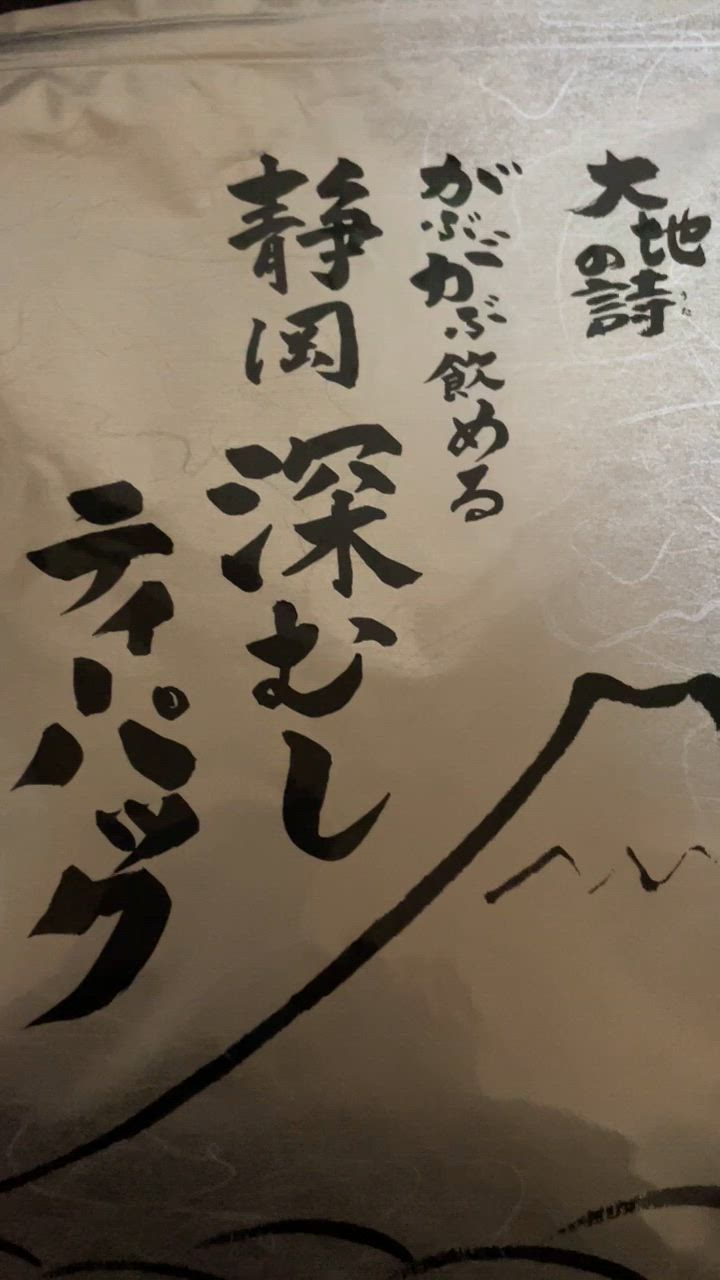 大地の詩
うた
がぶがぶ飲める
静岡
深むし
ティバッグ